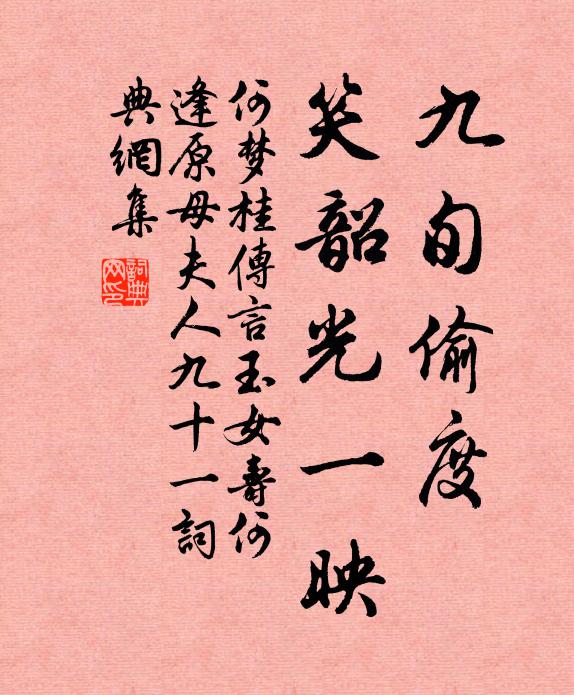 九旬偷度
笑韶光一映
何梦桂傳言玉女壽何
逢原母夫人九十一詞
典網集
詞典
网印